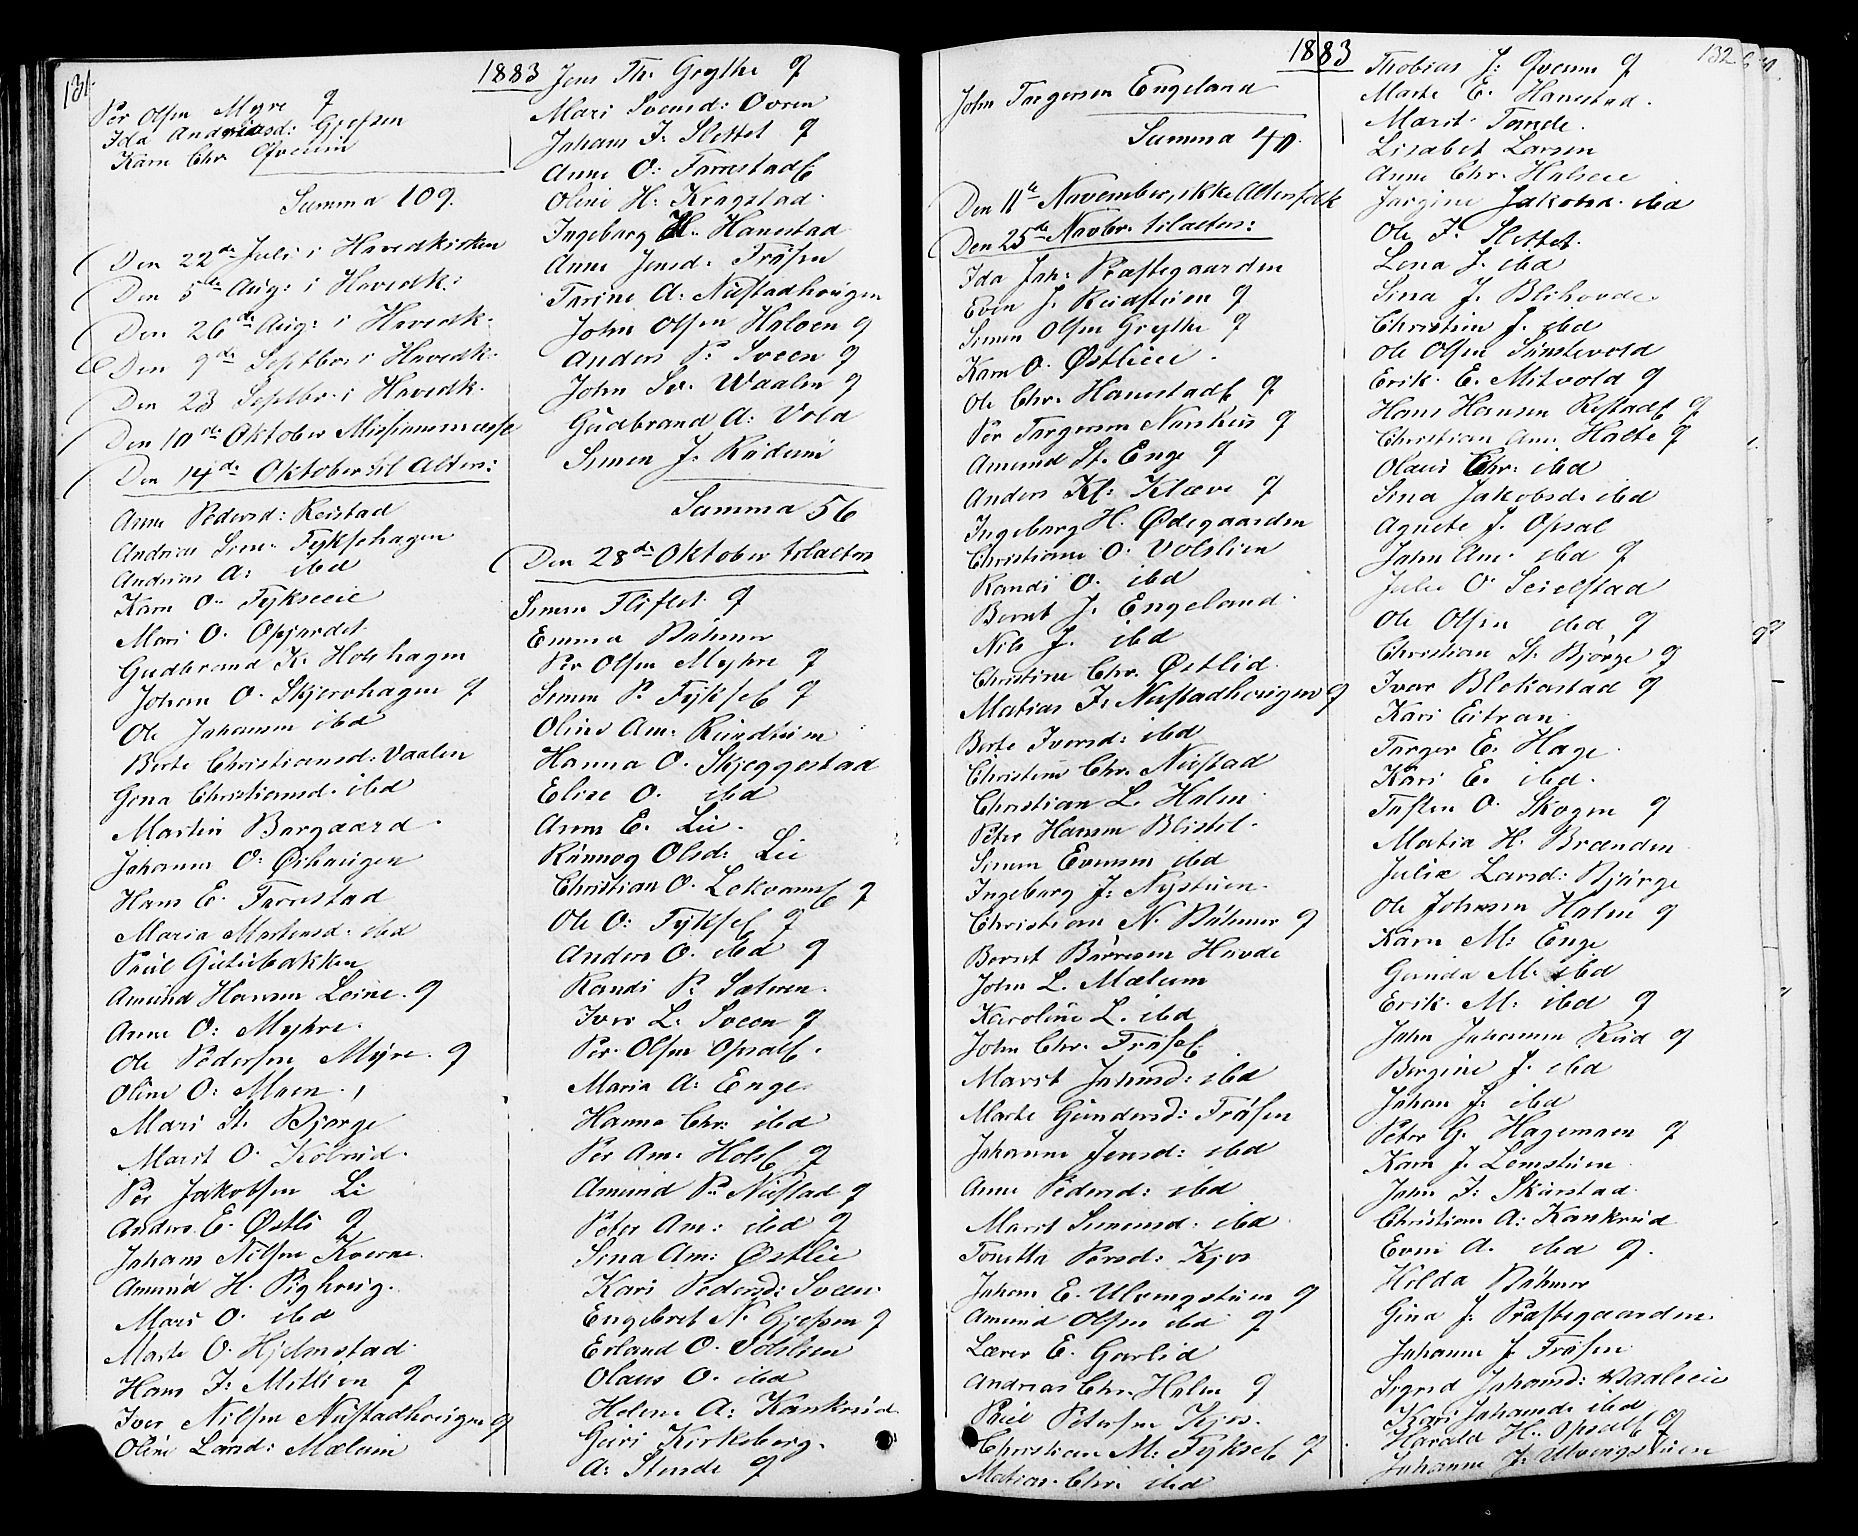 131.
1883
Per Olsen Myre q
Ida Andreasd: Gjefsen
Karn Chr. Øveren
Summa 109.
Den 22de Juli i Hovedkirken
Den 5te Aug: i Hovedk:
Den 26de Aug: i Hovedk.
Den 9de Septbr. i Hovedk.
Den 23 Septbr. i Hovedk.
Den 10de Oktober Missionsmesse
Den 14de Oktober til Alters:
Anne Pedersd: Reistad
Andreas Sim. Fyksehagen
Andreas A: ibd
Karn O. Fykseeie
Mari O. Opjordet
Gudbrand K. Holshagen
Johan O. Skjervhagen q
Ole Johansen ibd
Berte Christiansd: Vaalen
Gina Christiansd. ibd
Martin Borgaard.
Johanne O: Ørhaugen
Hans E. Farrestad
Maria Mortensd. ibd
Paul Gutubakken
Amund Hansen Loine. q
Anne O: Myhre.
Ole Pedersen Myre. q
Oline O: Moen.
Mari St. Bjørge
Marit O. Kolrud.
Per Jakobsen Li
Anders E. Østli q
Johans Nilsen Kverne.
Amund H. Pighoug.
Mari O. ibd
Marte O. Hjelmstad.
Hans J: Mitlien q
Iver Nilsen Nustadhougen q
Oline Larsd: Mælum
Jens Th. Grythe q
Mari Svensd: Ovren
Johans J. Slettet q
Anne O: Farrestad
Oline H. Kragstad.
Ingeborg H. Hanestad
Anne Jensd. Frøsen
Torine A: Nustadhougen
John Olsen Holoen q
Anders P. Sveen q
John Sv. Waalen q
Gudbrand A: Vold
Simen J. Rudum
Summa 56
Den 28de Oktober til alters
Simen Fliflet q
Emma Bøhmer
Per Olsen Myhre q
Simen P. Fykse q
Oline Am. Rundtum
Hanna O. Skjeggestad
Elise O. ibd
Anne E. Lie.
Rønnog Olsd: Lie
Christian O. Lokvam q
Ole O: Fykse q
Anders O. ibd q
Randi P. Sætren.
Iver L. Sveen q
Per Olsen Opsal.
Maria A: Enge.
Hanna Chr: ibd
Per Am. Hols q
Amund P. Nustad q
Peter Am: ibd q
Sina Am: Østlie
Kari Pedersd: Sveen.
Engebret N. Gjefsen q
Erland O. Volslien
Olaus O. ibd
Helene A: Kankrud
Guri Kirkeberg.
A: Stende q
1883
John Torgersen Engeland
Summa 40.
Den 11te November, ikke Altersfolk
Den 25de Novbr. til alters:
Ida Joh: Præstegaarden
Even J. Rudstuen q
Simen Olsen Grythe q
Karn O. Østlieie.
Ole Chr. Hanestad q
Per Torgersen Norshus q
Amund St. Enge q
Anders Kl: Kløve q
Ingeborg H. Ødegaarden
Christiane O. Volslien
Randi O. ibd
Bernt J. Engeland.
Nils J. ibd
Christine Chr. Østlid.
Matias J. Nustadhougen q
Berte Iversd: ibd
Christine Chr. Nustad
Christian L. Holm.
Peter Hansen Blistel.
Simen Evensen ibd
Ingeborg J. Nystuen.
Christian N. Bøhmer q
Bernt Børresen Hovde
John L. Mælum
Karoline L. ibd
John Chr. Frøse
Marit Johnsd: ibd
Marte Gundersd: Frøsen
Johanne Jensd: ibd
Anne Pedersd: ibd
Marit Simensd: ibd
Tonetta Persd: Kjos
Johan E. Ulvengstuen q
Amund Olsen ibd q
Lærer E. Garlid
Andreas Chr. Holm q
Paul Petersen Kjos.
Christian M. Fykse q
Matias Chr. ibd
132
Thobias J: Øveren q
Marte E. Hanestad.
Marit Tonde.
Lisabet Larsen
Anne Chr. Holseie
Jørgine Jakobsd. ibd
Ole J. Slettet.
Lena J. ibd
Sina J. Blihovde
Christian J. ibd
Ole Olsen Sønstevold
Erik E. Mitvold q
Hans Hansen Rostad q
Christian Am. Holte q
Olaus Chr. ibd
Sina Jakobsd: ibd
Agnete J. Opsal
John Am. ibd q
Julie O. Seielstad
Ole Olsen ibd q
Christian St. Bjørge q
Iver Blekastad q
Kari Eitran
Torger E. Hage.
Kari E. ibd.
Tosten O. Skogen q
Matia H. Brænden
Julie Larsd: Bjørge
Ole Johnsen Holm q
Karn M: Enge
Gunda M. ibd
Erik M: ibd q
John Johannsen Rud q
Bergine J. ibd
Johan J. ibd
Peter G. Hagemoen q
Karn J. Lomstuen
John J: Skurstad.
Christian A: Kankrud
Even A. ibd q.
Holda Bøhmer
Gina J. Præstegaarden.
Johanne J. Frøsen
Sigrid Johansd: Waaleeie
Kari Johansd. ibd
Harald H. Opsal q
Johanne J. Ulvengstuen